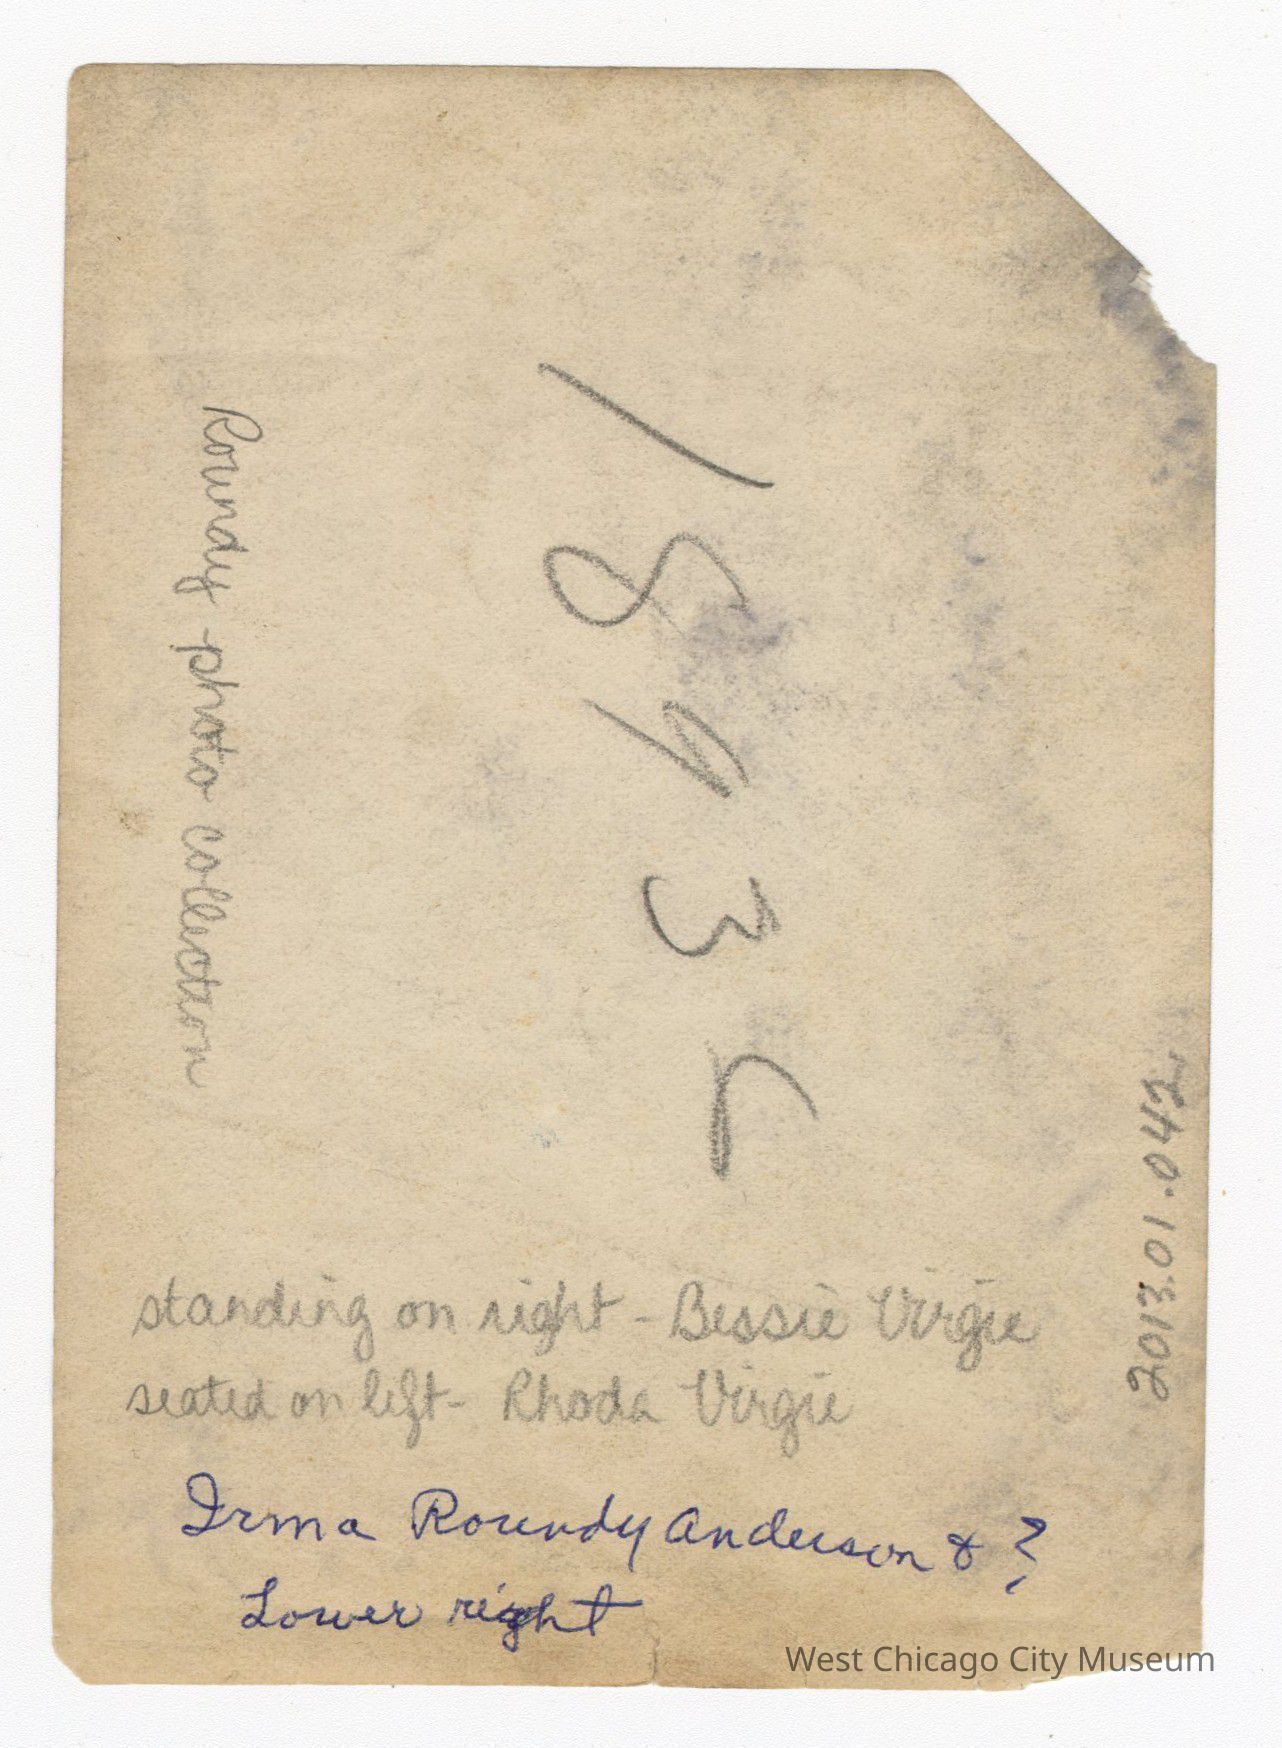 Roundy photo collection
1893
2013.01.042
standing on right - Bessie Virgie
seated on left - Rhoda Virgie
Irma Roundy Anderson & ?
Lower right
West Chicago City Museum